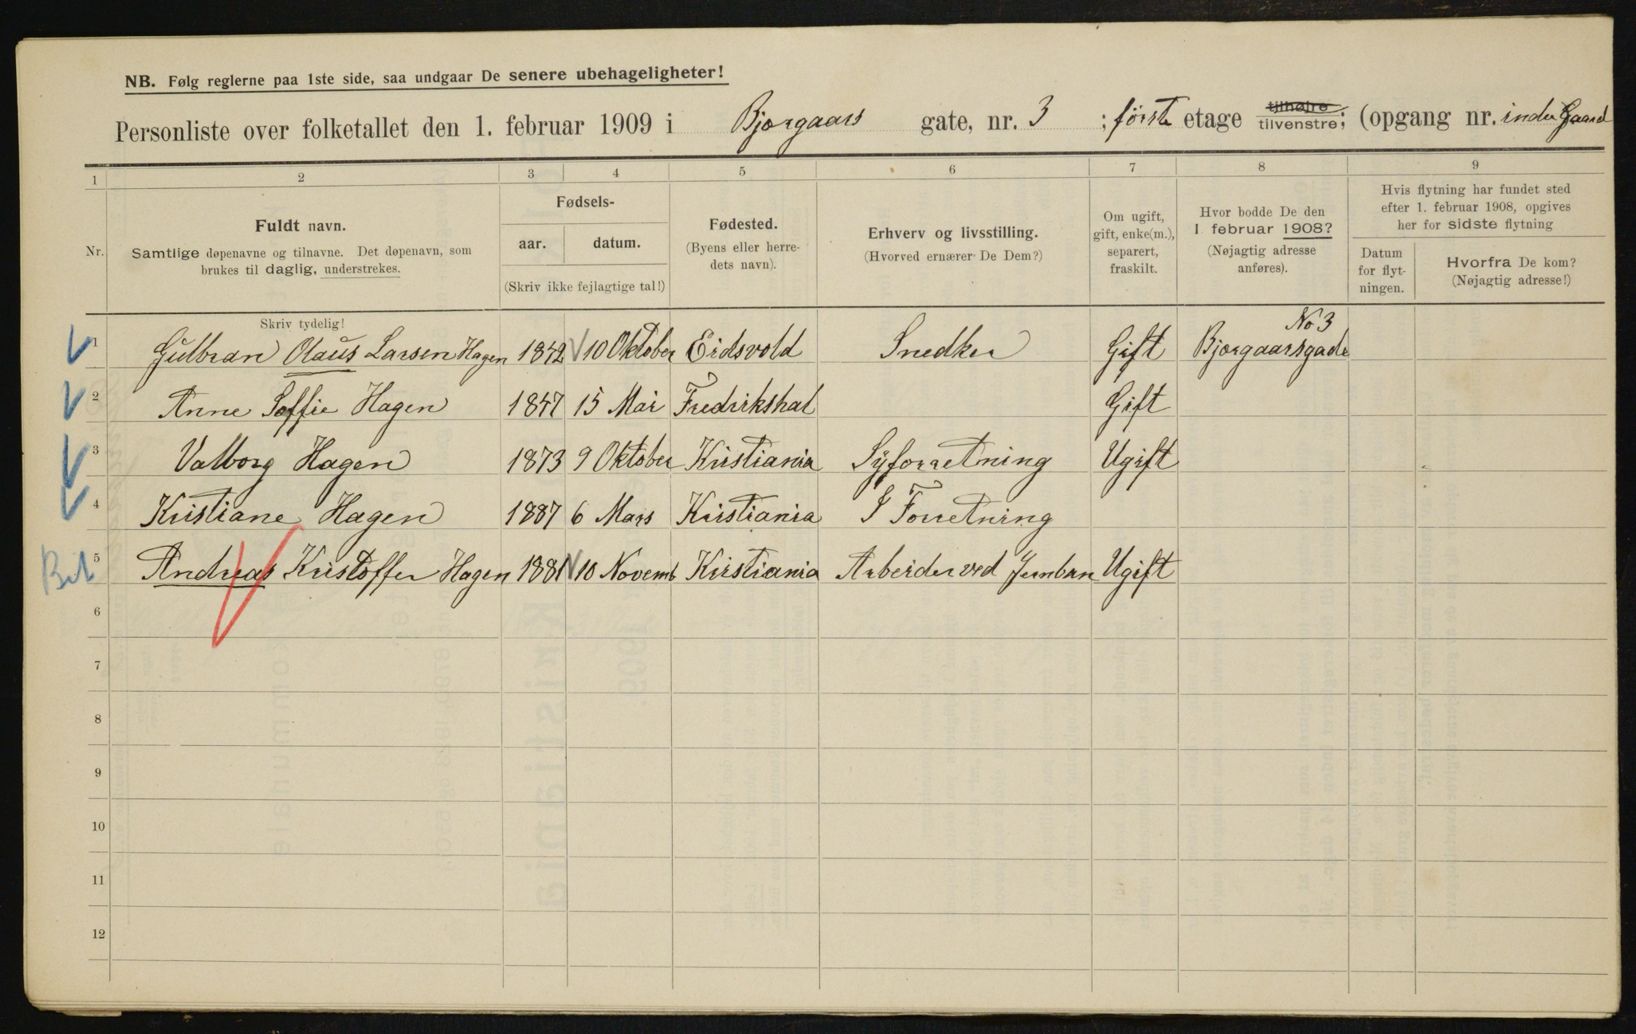 NB. Følg reglerne paa 1ste side, saa undgaar De senere ubehageligheter!
Personliste over folketallet den 1. februar 1909 i Bjorgaars gate, nr. 3 ; første etage tilhøire tilvenstre; (opgang nr. indre Gaard
1 2 3 4 5 6 7 8 9
Nr.
Fuldt navn.
Samtlige døpenavne og tilnavne. Det døpenavn, som
brukes til daglig, understrekes.
Fødsels-
aar. datum.
(Skriv ikke fejlagtige tal!)
Fødested.
(Byens eller herre-
dets navn).
Erhverv og livsstilling.
(Hvorved ernærer De Dem?)
Om ugift,
gift, enke(m.),
separert,
fraskilt.
Hvor bodde De den
1. februar 1908?
(Nøjagtig adresse
anføres).
Hvis flytning har fundet sted
efter 1. februar 1908, opgives
her for sidste flytning
Datum
for flyt-
ningen.
Hvorfra De kom?
(Nøjagtig adresse!)
Skriv tydelig!
No 3
1 Gulbran Olaus Larsen Hagen 1842 10 Oktober Eidsvold Snedker Gift Bjorgaarsgade
2 Anne Soffie Hagen 1847 15 Mai Fredrikshal Gift
3 Valborg Hagen 1873 9 Oktober Kristiania Syforretning Ugift
4 Kristiane Hagen 1887 6 Mars Kristiania I Forretning
5 Andreas Kristoffer Hagen 1881 10 Novemb Kristiania Arbeider ved Jernban Ugift
6
7
8
9
10
11
12